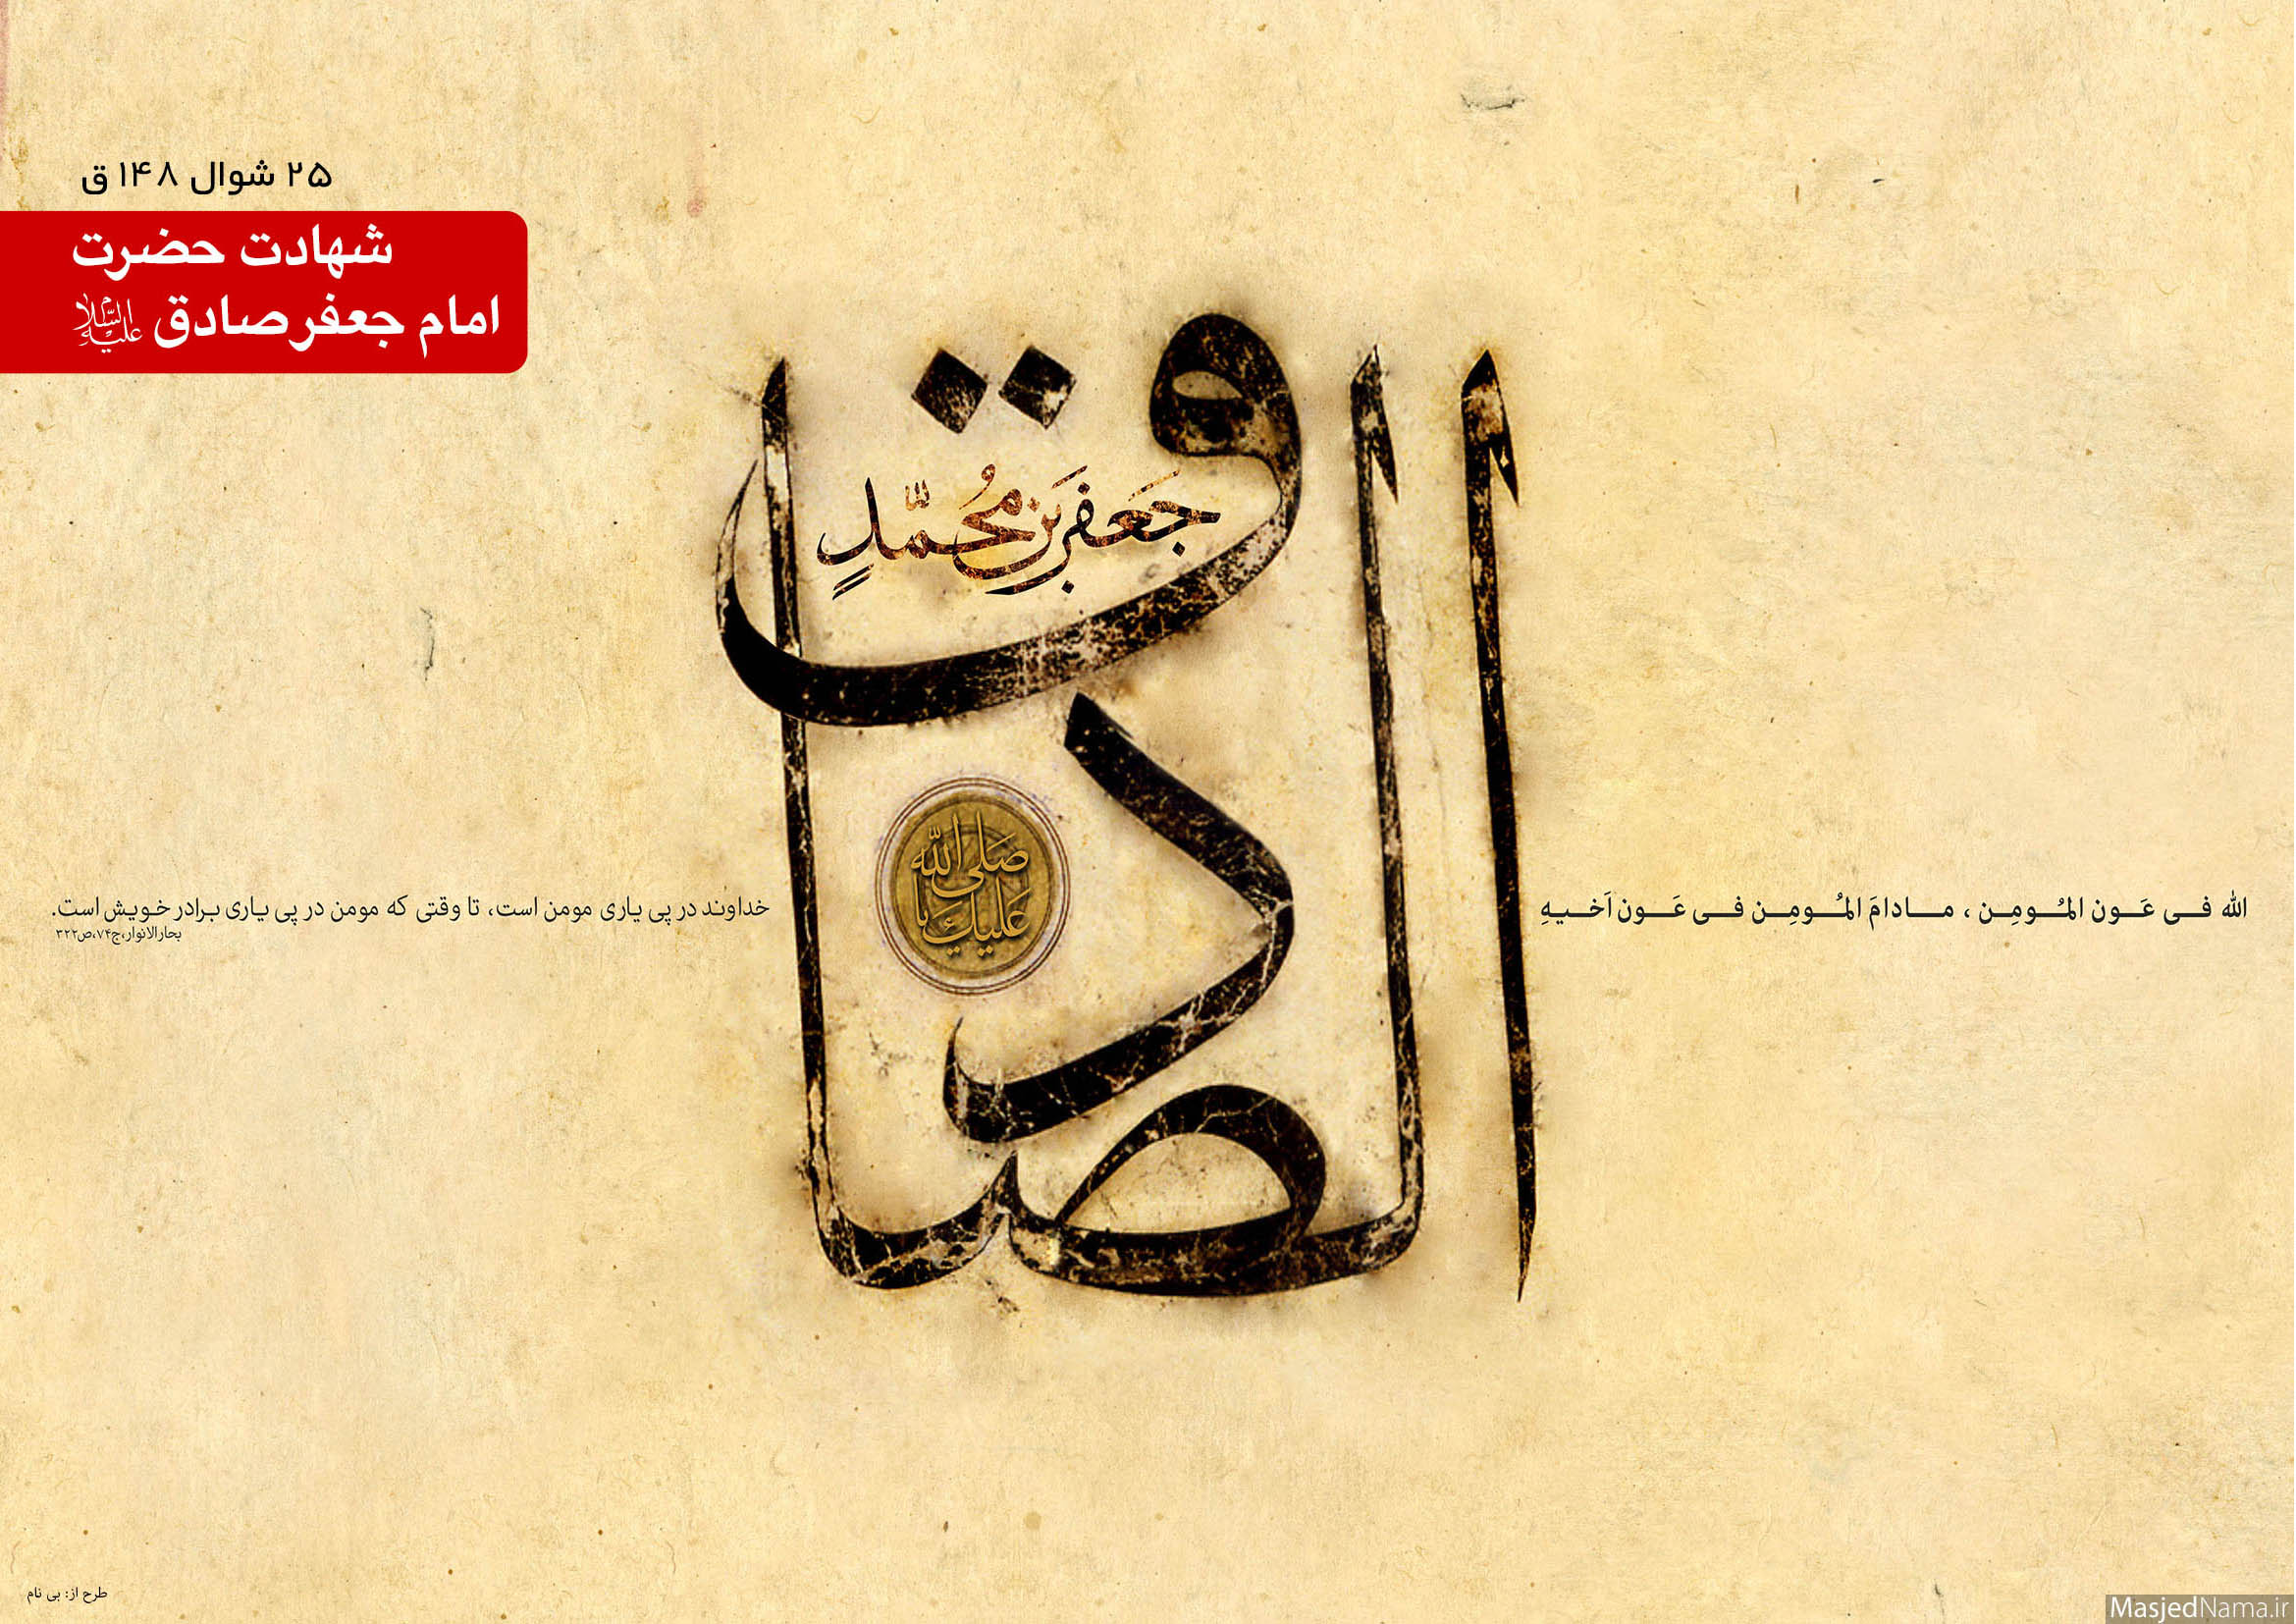 ۲۵ شوال ۱۴۸ ق
شهادت حضرت
امام جعفر صادق علیه السلام
جَعفَر بَن مُحمّدٍ
الصادق
صَلی الله
عَلیكَ یا
الله فـی عَـون المُـومِـن ، مـادامَ المُـومِـن فـی عَـون اَخـیـهِ
خداوند در پی یاری مومن است، تا وقتی که مومن در پی یاری برادر خویش است.
بحارالانوار،ج۷۴،ص۳۲۲
طرح از: بی نام
MasjedNama.ir